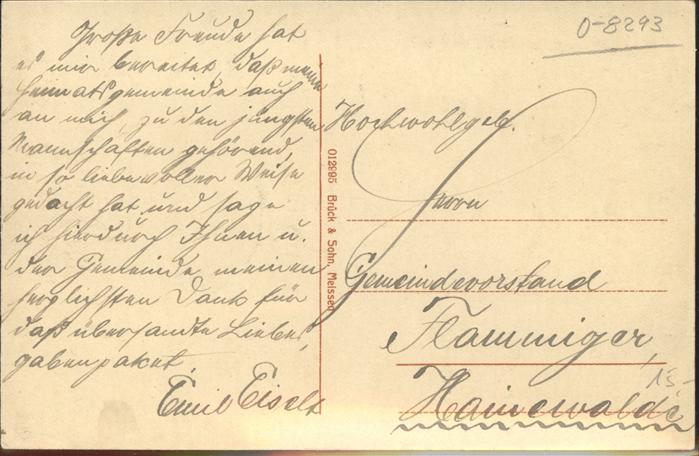 0-8293
Große Freude hat
es mir bereitet, daß meine
Heimatsgemeinde auch
an mich, zu den jüngsten
Mannschaften gehörend,
in so liebevoller Weise
gedacht hat und sage
ich hierdurch Ihnen u.
der Gemeinde meinen
herzlichsten Dank für
daß übersandte Liebes,
gabenpaket.
Emil Eiselt
012995 Brück & Sohn, Meissen
Hochwohlgeb.
Herrn
Gemeindevorstand
Flammiger,
Hainewalde
15-